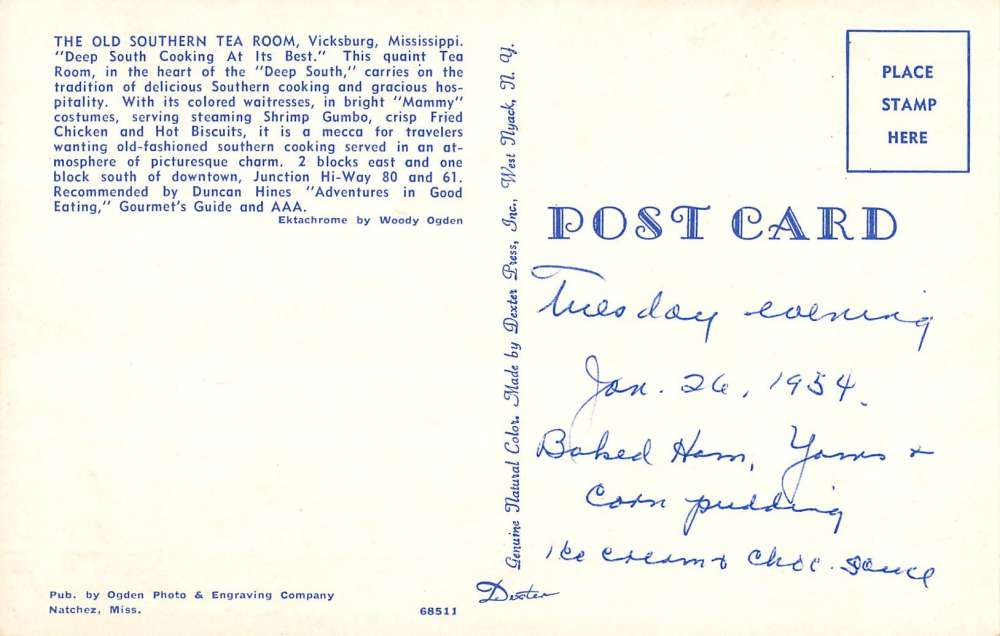 THE OLD SOUTHERN TEA ROOM, Vicksburg, Mississippi.
"Deep South Cooking At Its Best." This quaint Tea
Room, in the heart of the "Deep South," carries on the
tradition of delicious Southern cooking and gracious hos-
pitality. With its colored waitresses, in bright "Mammy"
costumes, serving steaming Shrimp Gumbo, crisp Fried
Chicken and Hot Biscuits, it is a mecca for travelers
wanting old-fashioned southern cooking served in an at-
mosphere of picturesque charm. 2 blocks east and one
block south of downtown, Junction Hi-Way 80 and 61.
Recommended by Duncan Hines "Adventures in Good
Eating," Gourmet's Guide and AAA.
Ektachrome by Woody Ogden
Pub. by Ogden Photo & Engraving Company
Natchez, Miss.
68511
Genuine Natural Color. Made by Dexter Press, Inc., West Nyack, N. Y.
Dexter
PLACE
STAMP
HERE
POST CARD
Tuesday evening
Jan. 26, 1954.
Baked Ham, Yams +
Corn pudding
Ice cream + Choc. Sauce